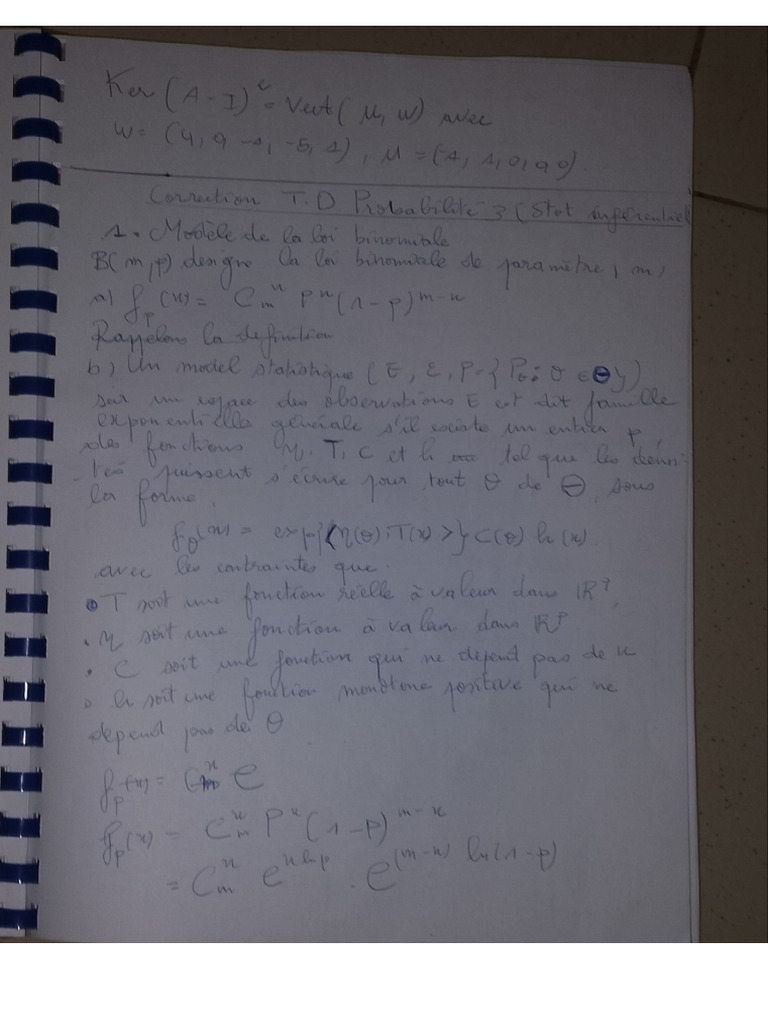 Ker (A - I)² = Vect(u, w) avec
w = (4, 9 -1, -5, 1), u = (-1, 1, 0, 9 0).
Correction T.D Probabilité 3 (Stat inférentiel
1. Modèle de la loi binomiale
B(m,p) designe la loi binomiale de paramètre, m,
a) f_p(x) = C_m^x P^x (1-p)^{m-x}
Rappelons la definition
b) Un model statistique (E, Ɛ, P = {P_θ; θ ∈ Θ})
sur un espace des observations E est dit famille
exponentielle générale s'il existe un entier p
des fonctions η, T, C et h tel que les densi-
tés puissent s'écrire pour tout θ de Θ, sous
la forme.
f_θ(x) = exp{<η(θ); T(x)>} C(θ) h(x)
avec les contraintes que.
• T soit une fonction réelle à valeur dans IR^p,
• η soit une fonction à valeur dans IR^p
• C soit une fonction qui ne depend pas de x
• h soit une fonction monotone positive qui ne
depend pas de θ
f_p(x) = C_m^x e
f_p(x) = C_m^x P^x (1-p)^{m-x}
= C_m^x e^{x ln p} . e^{(m-x) ln(1-p)}